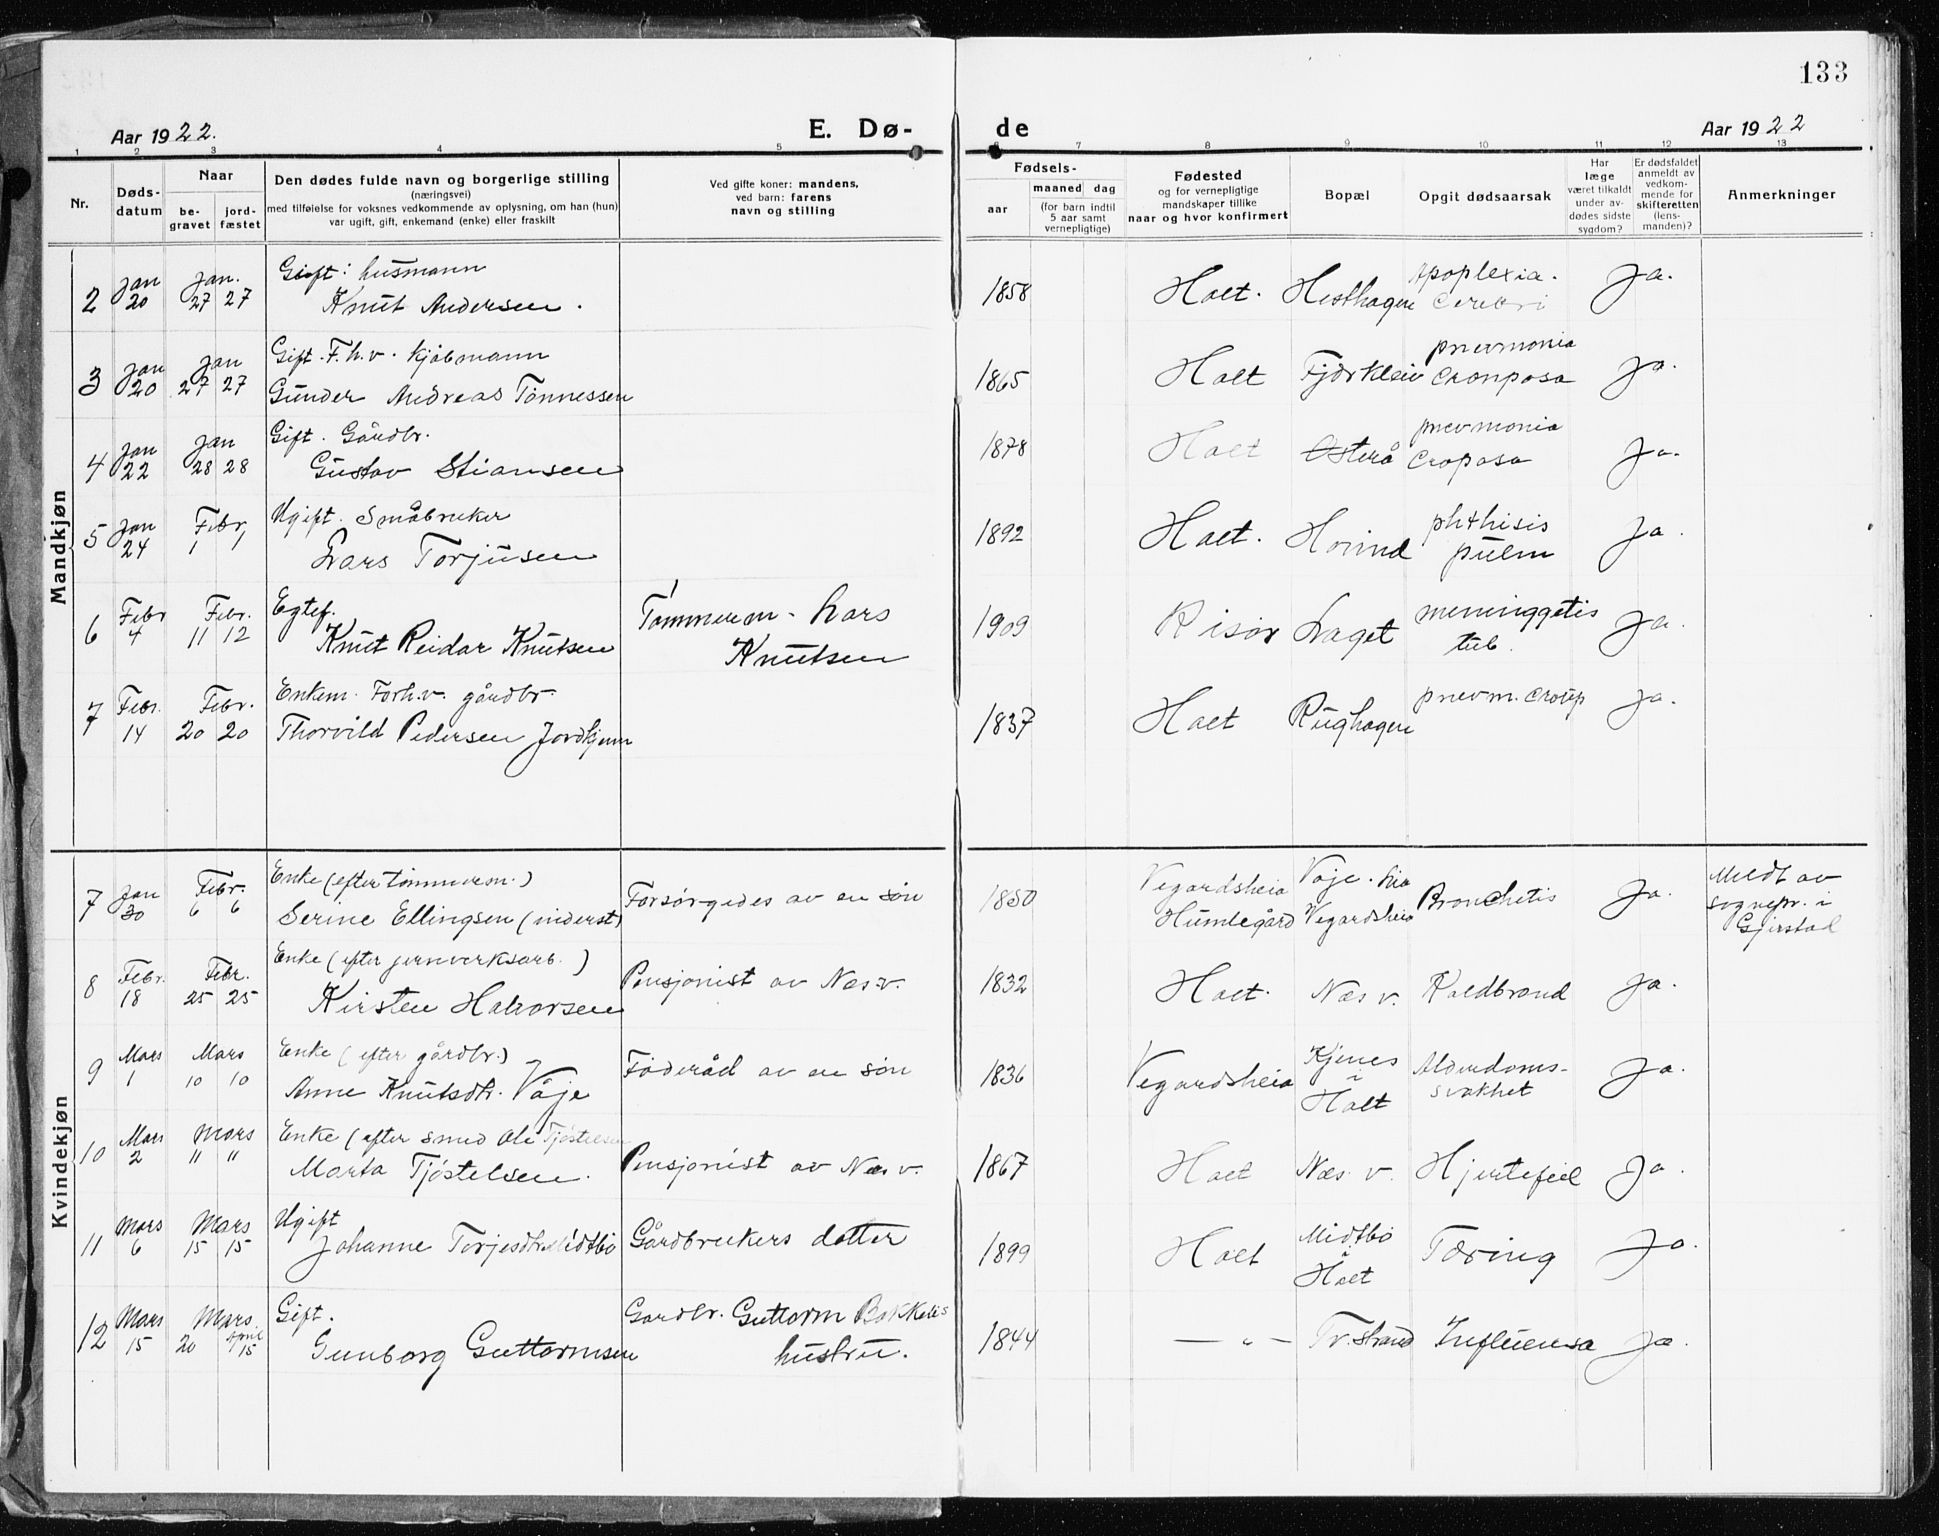 133
Aar 1922. E. Dø- de Aar 1922
1 2 3 4 5 6 7 8 9 10 11 12 13
Nr.
Døds-
datum
Naar
be-
gravet
jord-
fæstet
Den dødes fulde navn og borgerlige stilling
(næringsvei)
med tilføielse for voksnes vedkommende av oplysning, om han (hun)
var ugift, gift, enkemand (enke) eller fraskilt
Ved gifte koner: mandens,
ved barn: farens
navn og stilling
Fødsels-
aar
maaned dag
(for barn indtil
5 aar samt
vernepligtige)
Fødested
og for vernepligtige
mandskaper tillike
naar og hvor konfirmert
Bopæl
Opgit dødsaarsak
Har
læge
været tilkaldt
under av-
dødes sidste
sygdom?
Er dødsfaldet
anmeldt av
vedkom-
mende for
skifteretten
(lens-
manden)?
Anmerkninger
Mandkjøn
2 Jan 20 Jan. 27 27 Gift: husmann
Knut Andersen. 1858 Holt. Hesthagen Apoplexia.
Cerebri Ja.
3 Jan 20 Jan 27 27 Gift. F.h.v. kjøbmann
Gunder Andreas Tønnessen 1865 Holt Fjærkleiv pnevmonia
Cronposa Ja.
4 Jan 22 Jan 28 28 Gift. Gårdbr.
Gustav Stiansen 1878 Holt Osterå pnevmonia
Croposa Ja.
5 Jan 24 Febr 1 1 Ugift. Småbruker
Lars Torjusen 1892 Holt. phthisis
pulm Ja.
6 Febr 4 Febr. 11 12 Egtef.
Knut Reidar Knutsen Tømmerm. Lars
Knutsen 1909 Risør Laget meninggetis
tub. Ja.
7 Febr. 14 Febr. 20 20 Enkem. Forh.v. gårdbr.
Thorvild Pedersen Jordkjenn 1837 Holt Rughagen pnevm. Croup Ja.
Kvindekjøn
7 Jan 30 Febr. 6 6 Enke (efter tømmerm.)
Serine Ellingsen (inderst) Forsørgedes av en søn 1850 Vegardsheia
Humlegård Vaje. hia
Vegardsheia Bronchetis Ja. Meldt av
sognepr. i
Gjerstad
8 Febr. 18 Febr. 25 25 Enke (efter jernverksarb.)
Kirsten Halvorsen Pensjonist av Næs v. 1832 Holt. Næs v. Koldbrand Ja.
9 Mars 1 Mars 10 10 Enke (efter gårdbr.)
Anne Knutsdtr. Våje Føderåd av en søn 1836 Vegardsheia Kjenes
i
Holt Alderdoms-
svakhet Ja.
10 Mars 2 Mars " " Enke (efter smed Ole Tjøstelsen
Marta Tjøstelsen. Pensjonist av Næs v. 1867 Holt Næs v. Hjertefeil Ja.
11 Mars 6 Mars 15 15 Ugift
Johanne Terjesdtr. Midtbø Gårdbrukers datter 1899 Holt Midtbø
i
Holt Tæring Ja.
12 Mars 15 Mars. 20 April 15 Gift.
Gunborg Guttormsen Gardbr. Guttorm Bakkelis
hustru. 1844 — " — Tv.strand Influensa Ja.